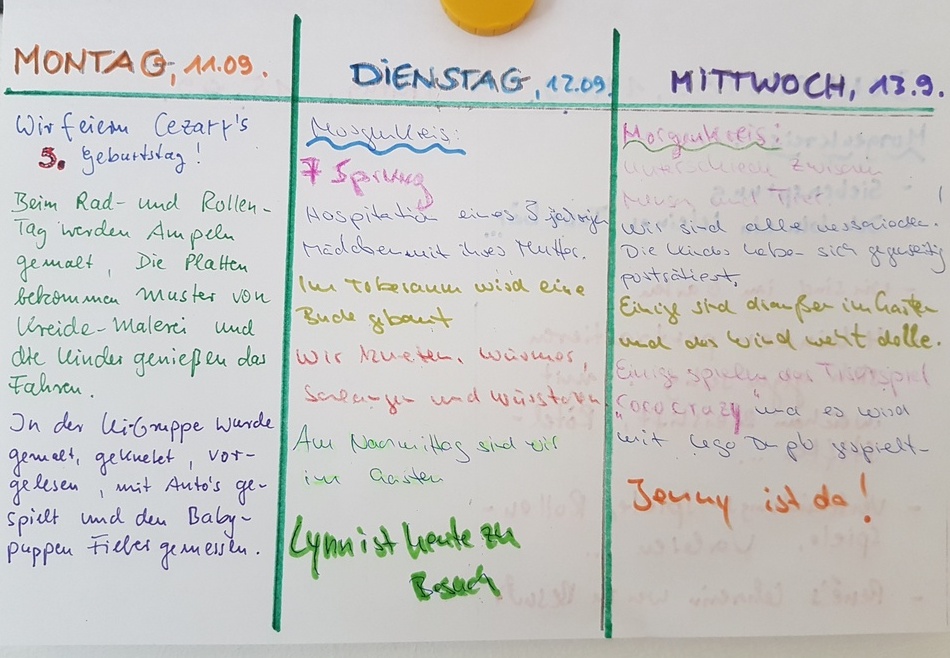 MONTAG, 11.09.
Wir feiern Cezary's
3. Geburtstag!
Beim Rad- und Rollen-
Tag werden Ampeln
gemalt, Die Platten
bekommen Muster von
Kreide-Malerei und
die Kinder genießen das
Fahren.
In der Ki-Gruppe wurde
gemalt, geknetet, vor-
gelesen, mit Auto's ge-
spielt und den Baby-
puppen Fieber gemessen.
DIENSTAG, 12.09.
Morgenkreis:
7 Sprung
Hospitation eines 3 jährigen
Mädchen mit ihrer Mutter.
Im Toberaum wird eine
Bude gebaut
Wir kneten, Würmer,
Schlangen und Würstchen
Am Nachmittag sind wir
im Garten
Lynn ist heute zu
Besuch
MITTWOCH, 13.9.
Morgenkreis:
Unterschied zwischen
Mensch und Tier
Wir sind alle verschieden.
Die Kinder haben sich gegenseitig
porträtiert.
Einige sind draußen im Garten
und der Wind weht dolle.
Einige spielen das Tierspiel
"Coco Crazy" und es wird
mit Lego Duplo gespielt-
Jenny ist da!